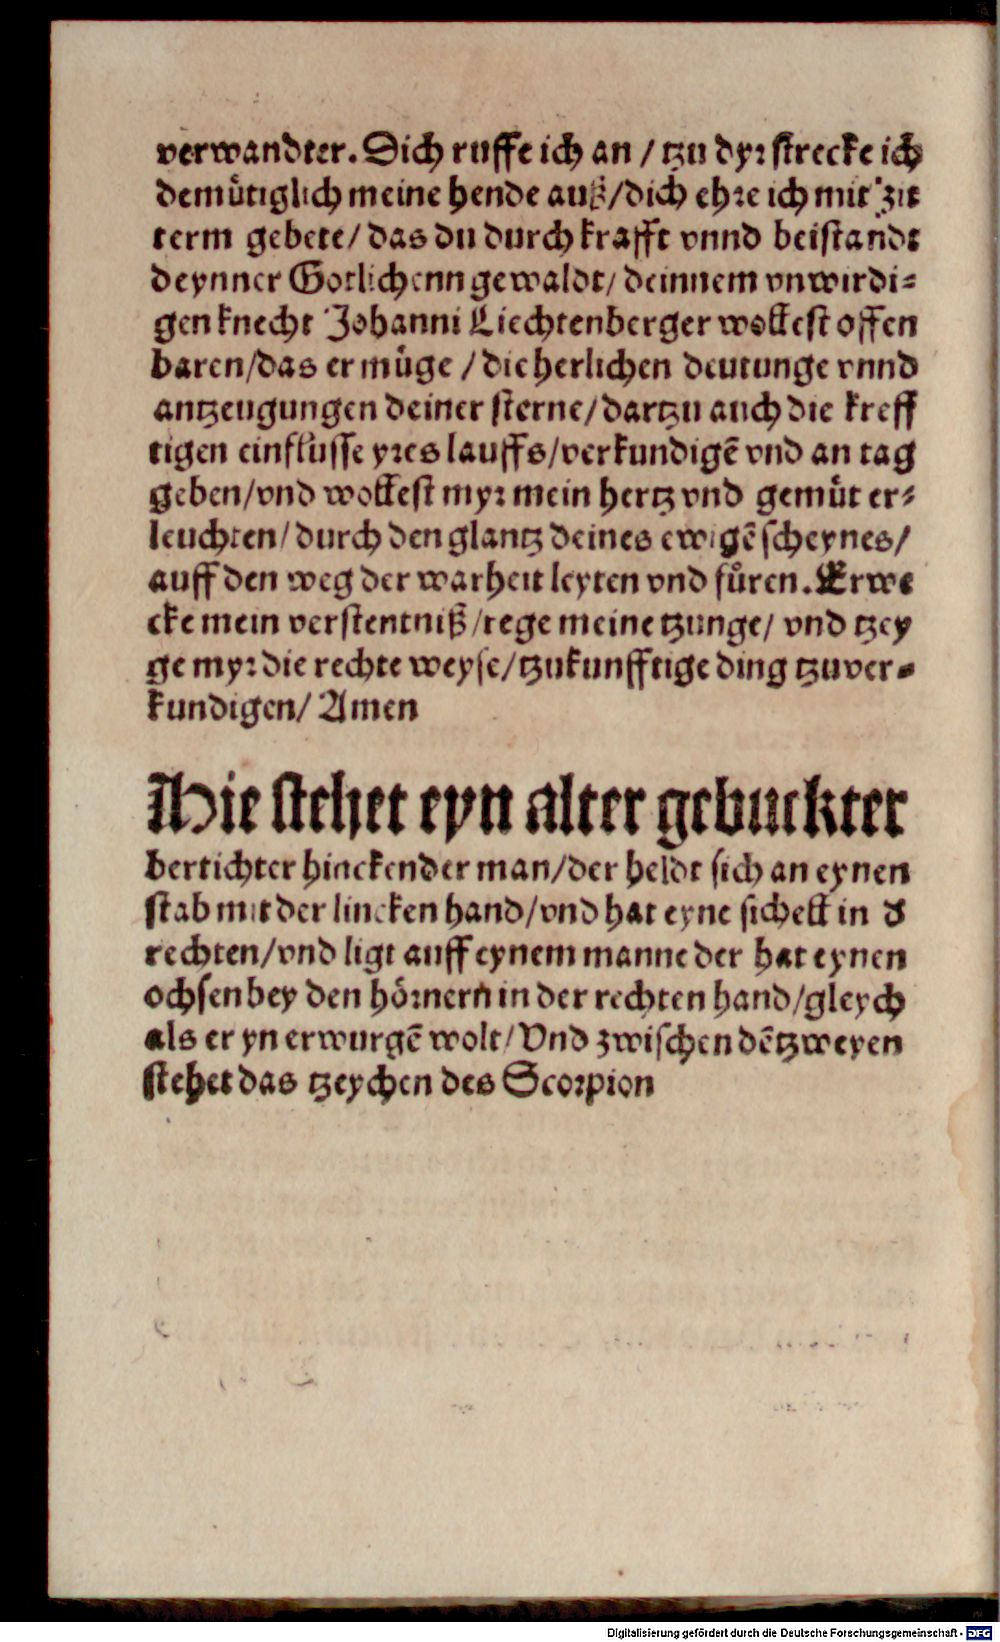 verwandter. Dich ruffe ich an / tzu dyr strecke ich
demütiglich meine hende auß/dich ehre ich mit zit
term gebete/ das du durch krafft vnnd beistandt
deynner Gotlichenn gewaldt/ deinnem vnwirdi-
gen knecht Johanni Liechtenberger wollest offen
baren/das er müge / die herlichen deutunge vnnd
antzeugungen deiner sterne/ dartzu auch die kreff
tigen einflusse yres lauffs/verkundigē vnd an tag
geben/vnd wollest myr mein hertz vnd gemüt er-
leuchten/ durch den glantz deines ewigē scheynes/
auff den weg der warheit leyten vnd füren. Erwe
cke mein verstentniß /rege meine tzunge/ vnd tzey
ge myr die rechte weyse/ tzukunfftige ding tzuver-
kundigen/ Amen
Hie stehet eyn alter gebuckter
bertichter hinckender man/der heldt sich an eynen
stab mit der lincken hand/vnd hat eyne sichell in d
rechten/vnd ligt auff eynem manne der hat eynen
ochsen bey den hörnern in der rechten hand/gleych
als er yn erwurgē wolt/ Vnd zwischen dē tzweyen
stehet das tzeychen des Scorpion
Digitalisierung gefördert durch die Deutsche Forschungsgemeinschaft - DFG